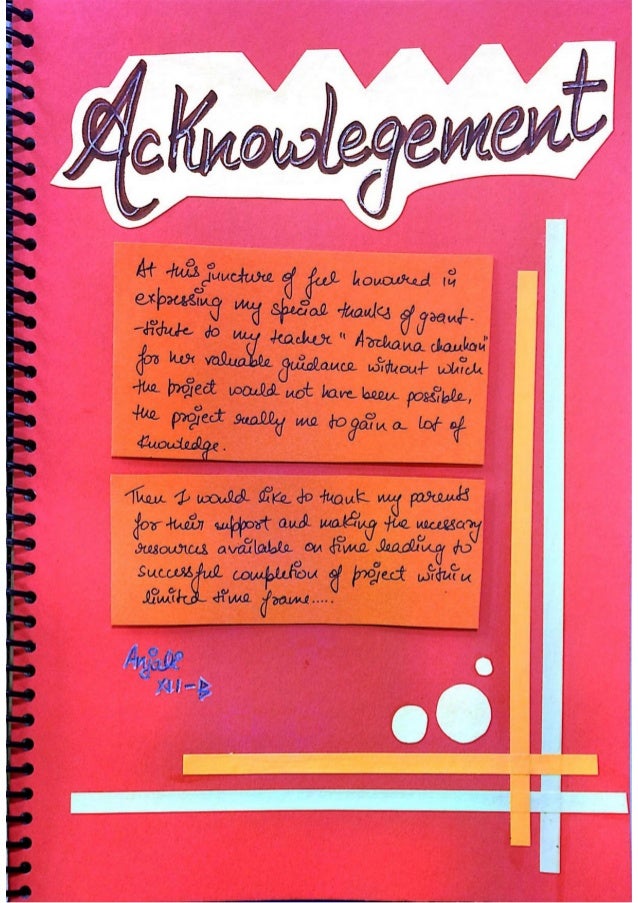 Acknowlegement
At this juncture of feel honoured in
expressing my special thanks of grant-
-titute to my teacher "Archana chauhan"
for her valuable guidance without which
the project would not have been possible,
the project really me to gain a lot of
knowledge.
Then I would like to thank my parents
for their support and making the necessary
resources available on time leading to
successful completion of project within
limited time frame.....
Anjali
XII-B